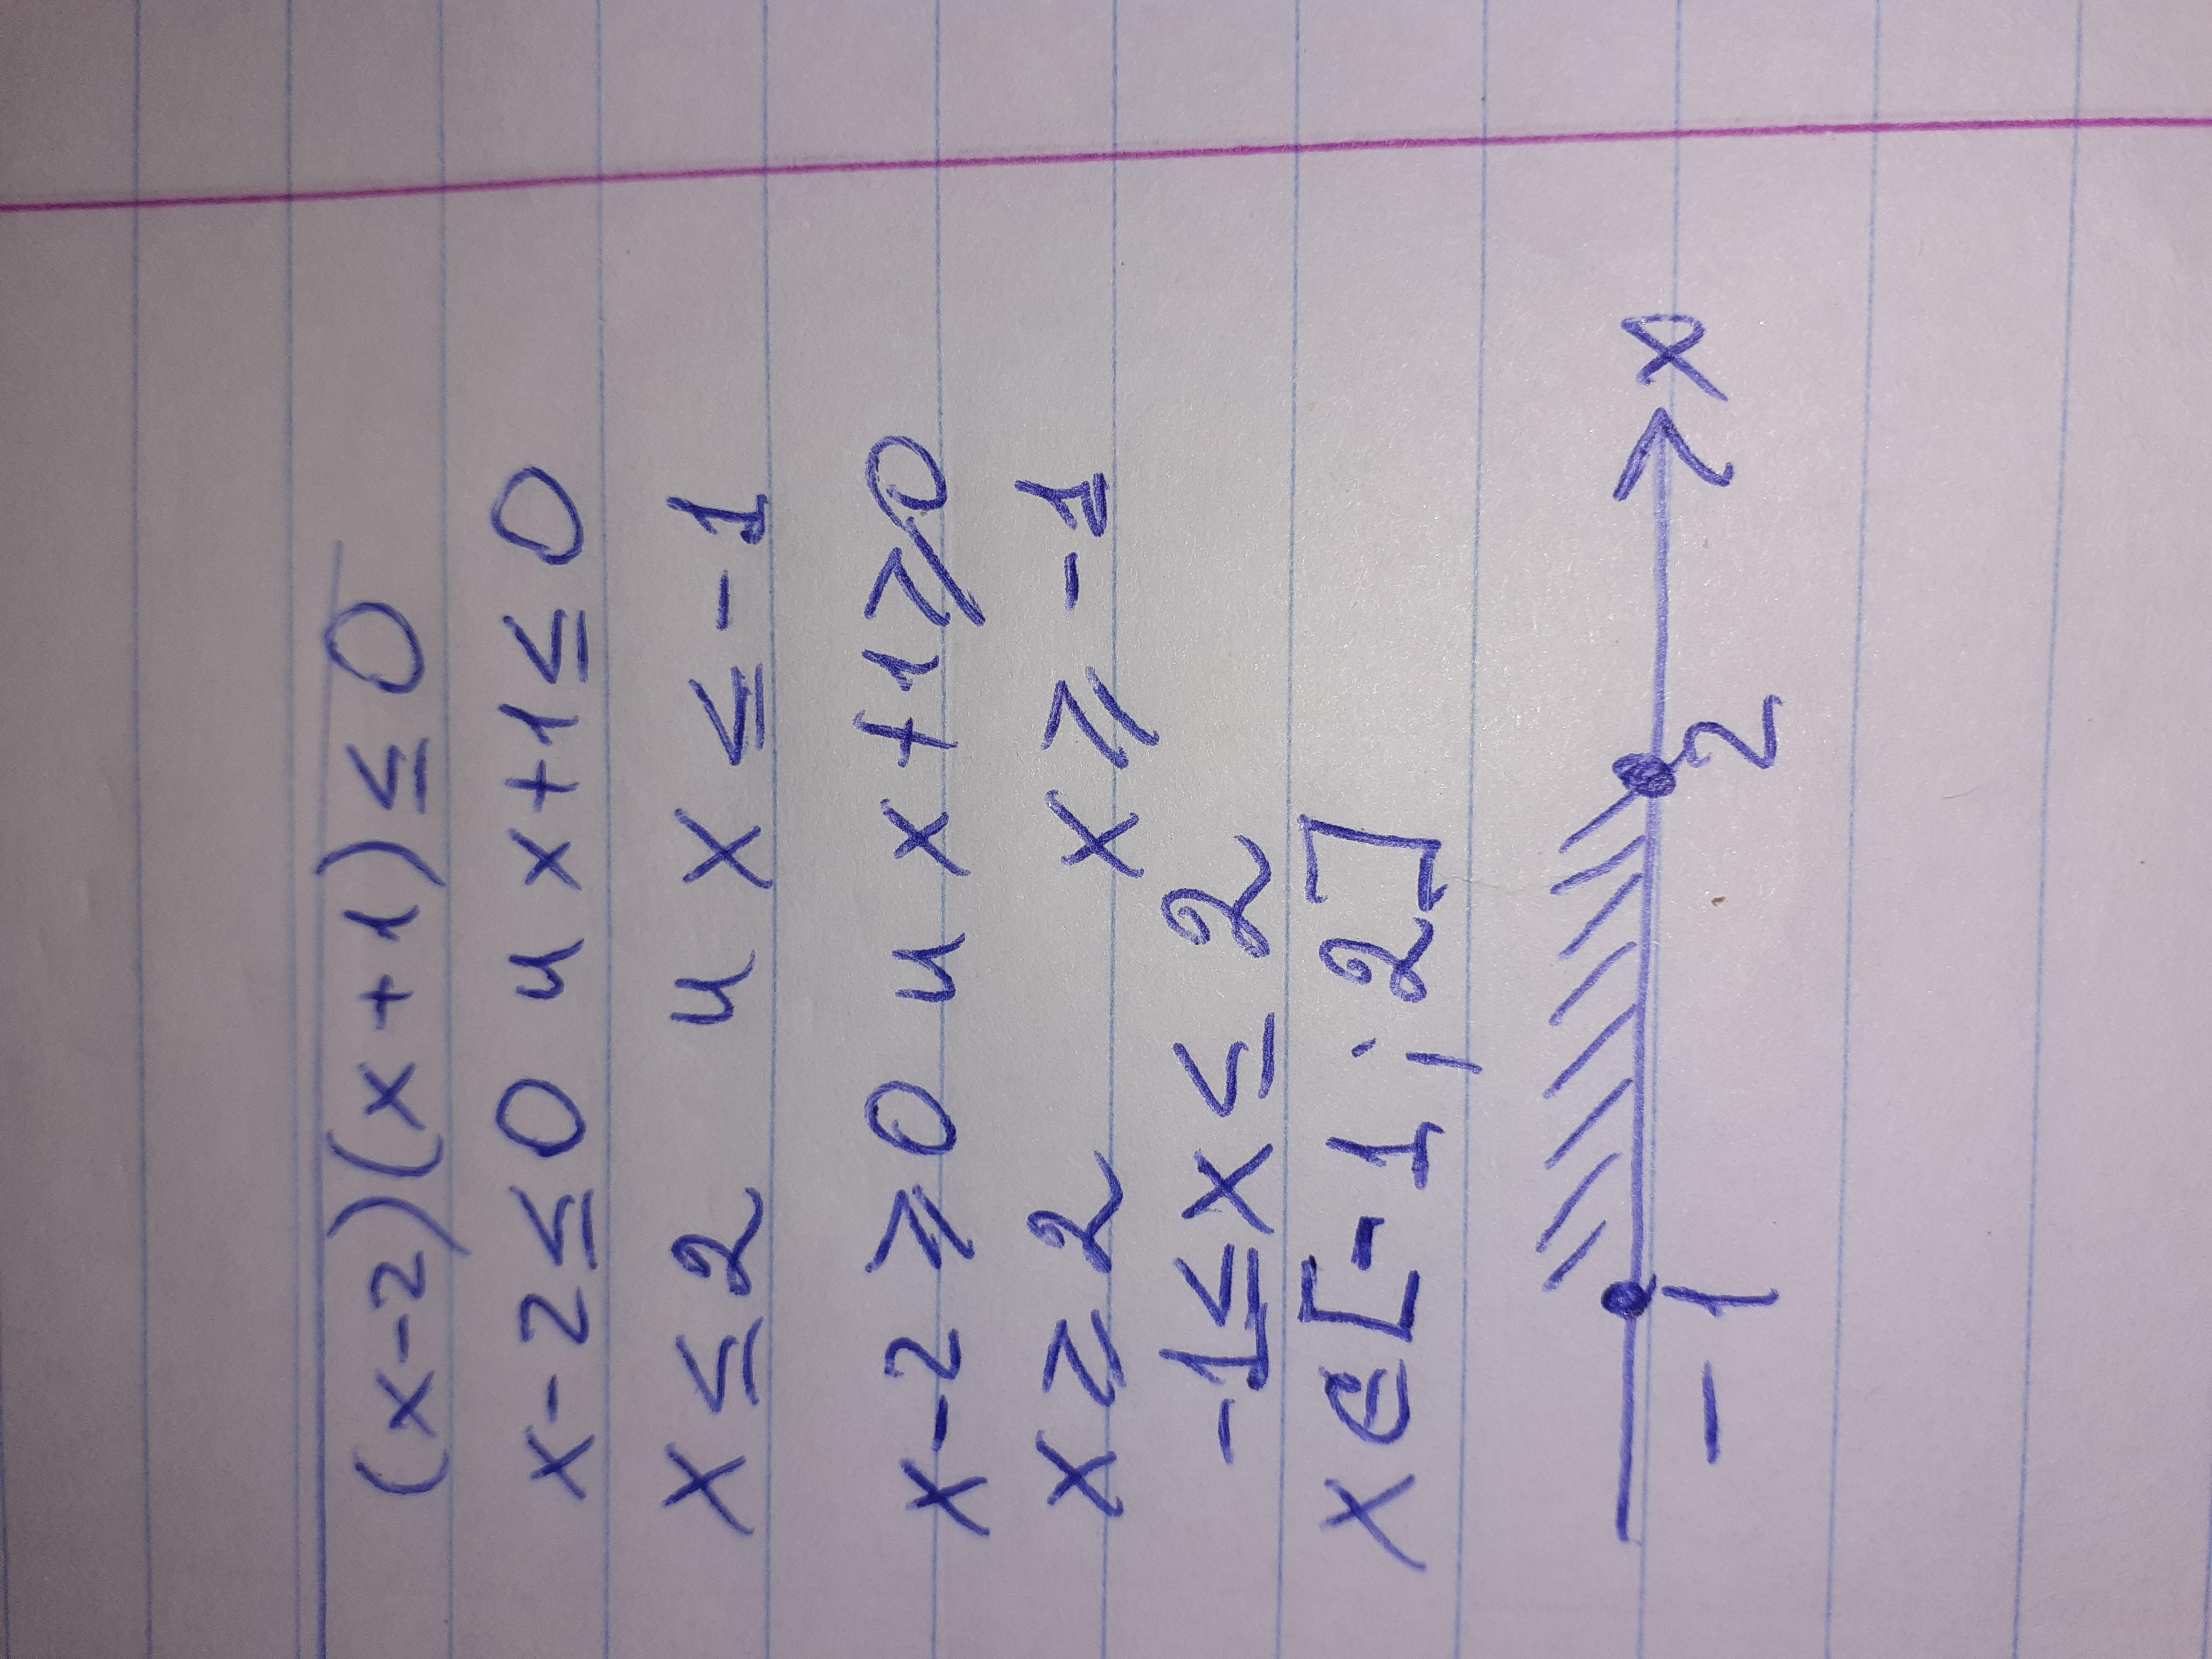 (x-2)(x+1)≤0
x-2≤0 и x+1≤0
x≤2 и x≤-1
x-2⩾0 и x+1⩾0
x≥2 x⩾-1
-1≤x≤2
x∈[-1;2]
x
-1 2